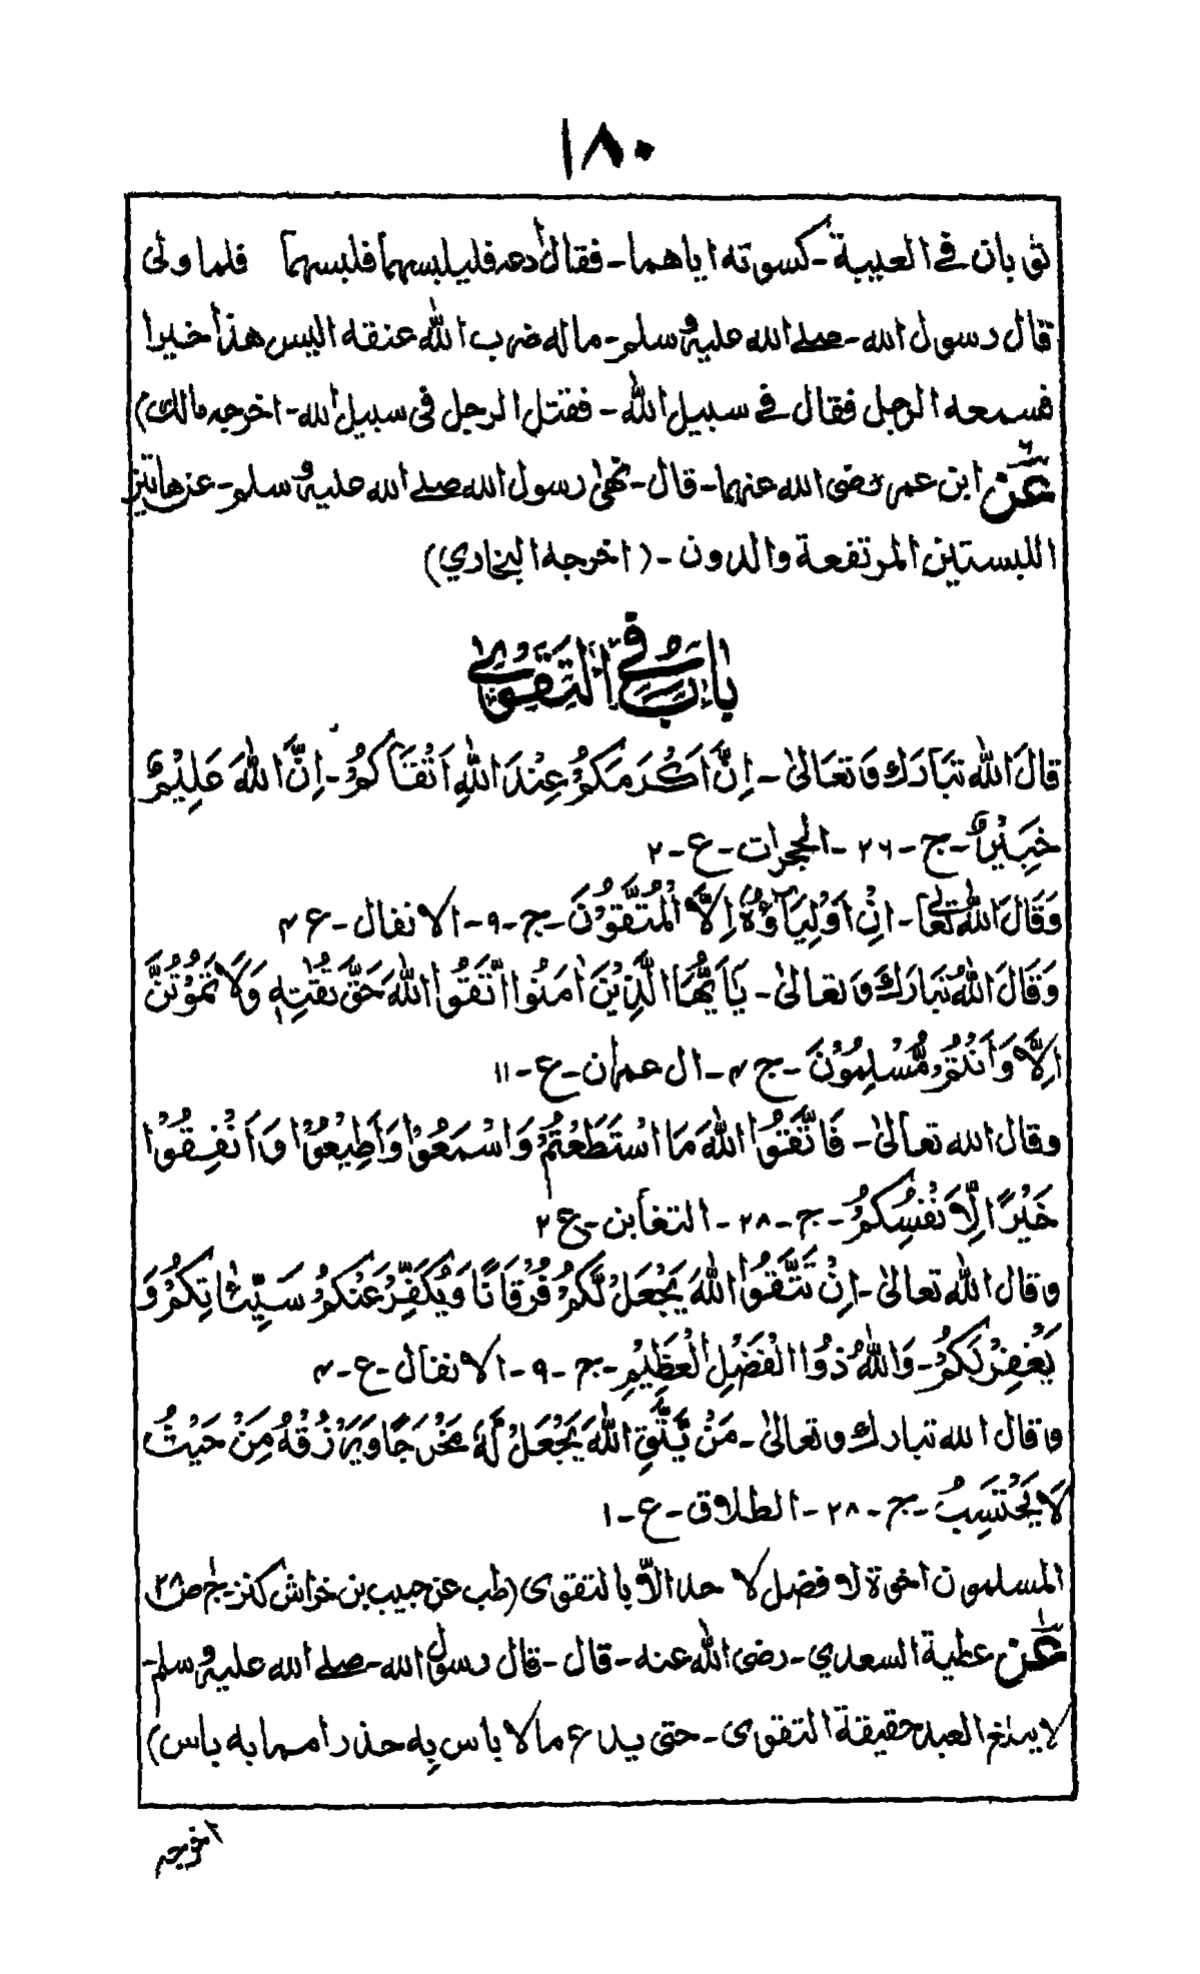 ١٨٠
ثوبان في العيبة - كسوته اياهما - فقال أدعه فليلبسهما فلبسهما فلما ولى
قال رسول الله - صلے الله عليه وسلم - ماله ضرب الله عنقه اليس هذا خيرا
فسمعه الرجل فقال في سبيل الله - فقتل الرجل في سبيل الله - اخرجه مالك)
عن ابن عمر رضى الله عنهما - قال - نهى رسول الله صلے الله عليه وسلم - عن هاتين
اللبستين المرتفعة والدون - (اخرجه البخاري)
بابٌ فِي التَقوىٰ
قالَ الله تبارك وَتعَالىٰ - اِنَّ اَكْرَمَكُمْ عِنْدَ اللهِ اَتْقٰىكُمْ - اِنَّ اللهَ عَلِيْمٌ
خَبِيْرٌ - ج - ٢٦ - الحجرات - ع - ٢
وَقَالَ اللهُ تعالىٰ - اِنْ اَوْلِيَآؤُهٗ اِلَّا الْمُتَّقُوْنَ - ج - ٩ - الانفال - ع ٤
وَقَالَ اللهُ تَبَارَكَ وَتعالىٰ - يٰۤاَيُّهَا الَّذِيْنَ اٰمَنُوا اتَّقُوا اللهَ حَقَّ تُقٰتِهٖ وَلَا تَمُوْتُنَّ
اِلَّا وَاَنْتُمْ مُّسْلِمُوْنَ - ج ٤ - ال عمران - ع - ١١
وقال الله تعالىٰ - فَاتَّقُوا اللهَ مَا اسْتَطَعْتُمْ وَاسْمَعُوْا وَاَطِيْعُوْا وَاَنْفِقُوْا
خَيْرًا لِّاَنْفُسِكُمْ - ج - ٢٨ - التغابن - ع ٢
وقال الله تعالىٰ - اِنْ تَتَّقُوا اللهَ يَجْعَلْ لَّكُمْ فُرْقَانًا وَّيُكَفِّرْ عَنْكُمْ سَيِّاٰتِكُمْ وَ
يَغْفِرْ لَكُمْ - وَاللهُ ذُوا الْفَضْلِ الْعَظِيْمِ - ج - ٩ - الانفال - ع - ٤
وقال الله تبارك وتعالىٰ - مَنْ يَّتَّقِ اللهَ يَجْعَلْ لَّهٗ مَخْرَجًا وَّيَرْزُقْهُ مِنْ حَيْثُ
لَا يَحْتَسِبُ - ج - ٢٨ - الطلاق - ع - ١
المسلمون اخوة لا فضل لاحد الّا بالتقوى (طب عن حبيب بن خراش كنز - ج
عن عطية السعدي - رضى الله عنه - قال - قال رسول الله - صلے الله عليه وسلم -
لا يبلغ العبد حقيقة التقوى - حتى يدع ما لا باس به حذرا مما به باس)
اخرجه